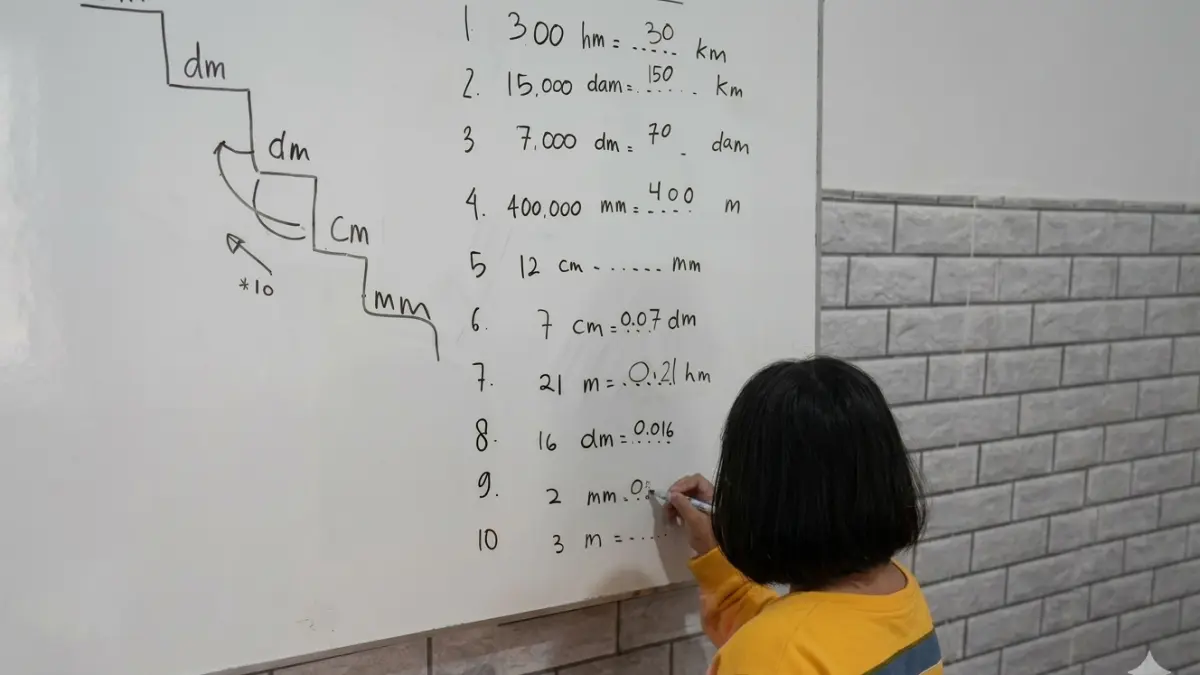 dm
dm
cm
mm
*10
1. 300 hm = 30 km
2. 15,000 dam = 150 km
3 7,000 dm = 70 dam
4. 400,000 mm = 400 m
5 12 cm - ...... mm
6. 7 cm = 0.07 dm
7. 21 m = 0.21 hm
8. 16 dm = 0.016
9. 2 mm
10 3 m = .....